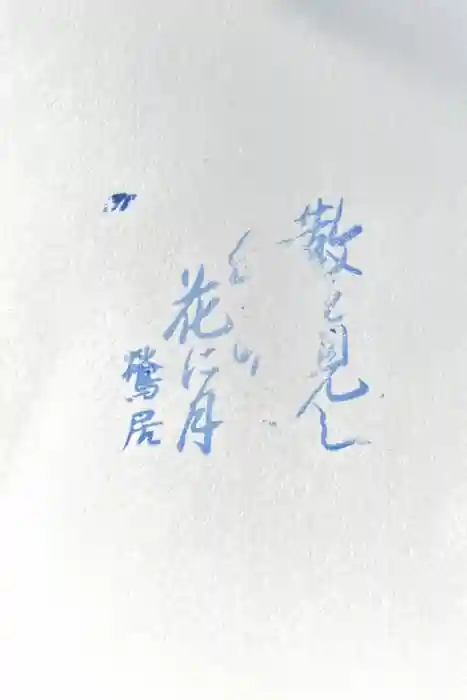 散と見し
花に月
鶯居